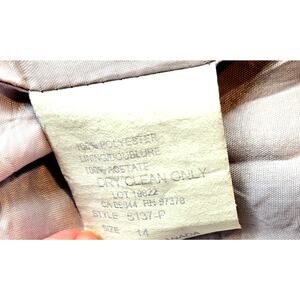 100% POLYESTER
LINING/DOUBLURE
100% ACETATE
DRY CLEAN ONLY
LOT 9822
CA 00944 RN 97378
STYLE 5137-P
SIZE 14
CANADA